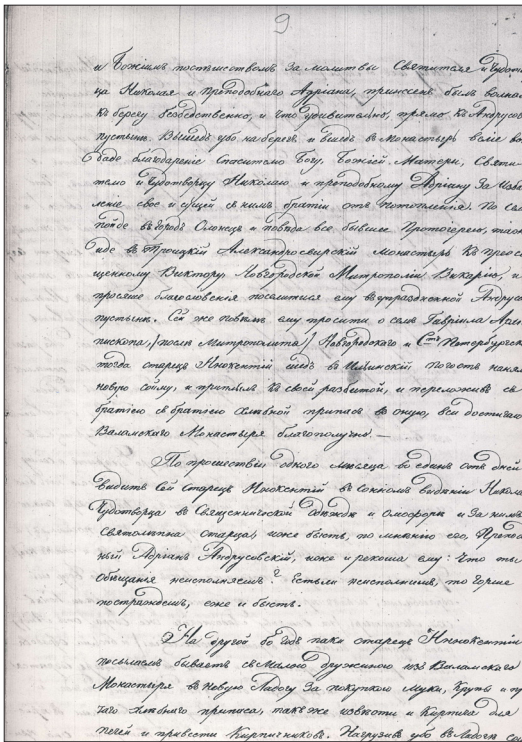 9
и Божіимъ поспѣшествомъ за молитвы Святителя и Чудотвор
ца Николая и преподобнаго Адріана, принесенъ былъ волнам
къ берегу безбѣдственно, и что удивительно, прямо къ Андрусов
пустынѣ. Вышедъ убо на берегъ и вшедъ въ монастырь веліе во
баде благодареніе Спасителю Богу, Божіей Матери, Святи-
телю и Чудотворцу Николаю и преподобному Адріану за изба
леніе свое и сущей съ нимъ братіи отъ потопленія. По сем
пойде въ городъ Олонецъ и повѣда все бывшее Протоіерею, так
иде въ Троицкій Александросвирскій монастырь къ преосв
щенному Виктору Новгородской Митрополіи Викарію, и
просяше благословенія поселитися ему въ упраздненной Андрус
пустынѣ. Сей же повелѣ ему просити о семъ Гавріила Архі
пископа, /послѣ Митрополита/ Новгородскаго и Стъ Петербургск
тогда старецъ Инокентій шедъ въ Илинскій погостъ нанял
новую сойму, и приплылъ къ своей разбитой, и переложивъ съ
братіею хлѣбной припасъ въ оную, вси достигло
Валамскаго Монастыря благополучно. —
По прошествіи одного мѣсяца во единъ отъ дней
видитъ сей старецъ Инокентій въ сонномъ видѣніи Никола
Чудотворца въ Священнической одеждѣ и омофорѣ и за нимъ
святолѣпна старца, иже бытъ, по мнѣнію его, Препод
ный Адріанъ Андрусовскій, иже и рекоша ему: Что ты
обѣщанія неисполняешъ? Естьли неисполнишъ, то горше
постраждешъ, еже и бысть.
На другой бо годъ паки старецъ Инокентій
посылаемъ бываетъ съ Малою дружиною изъ Валамскаго
Монастыря въ Новую Ладогу за покупкою муки, крупы и пр
чаго хлѣбнаго припаса, такъ же извѣсти и кирпича для
печей и привести кирпичниковъ. Нагрузивъ убо въ Ладогѣ сой